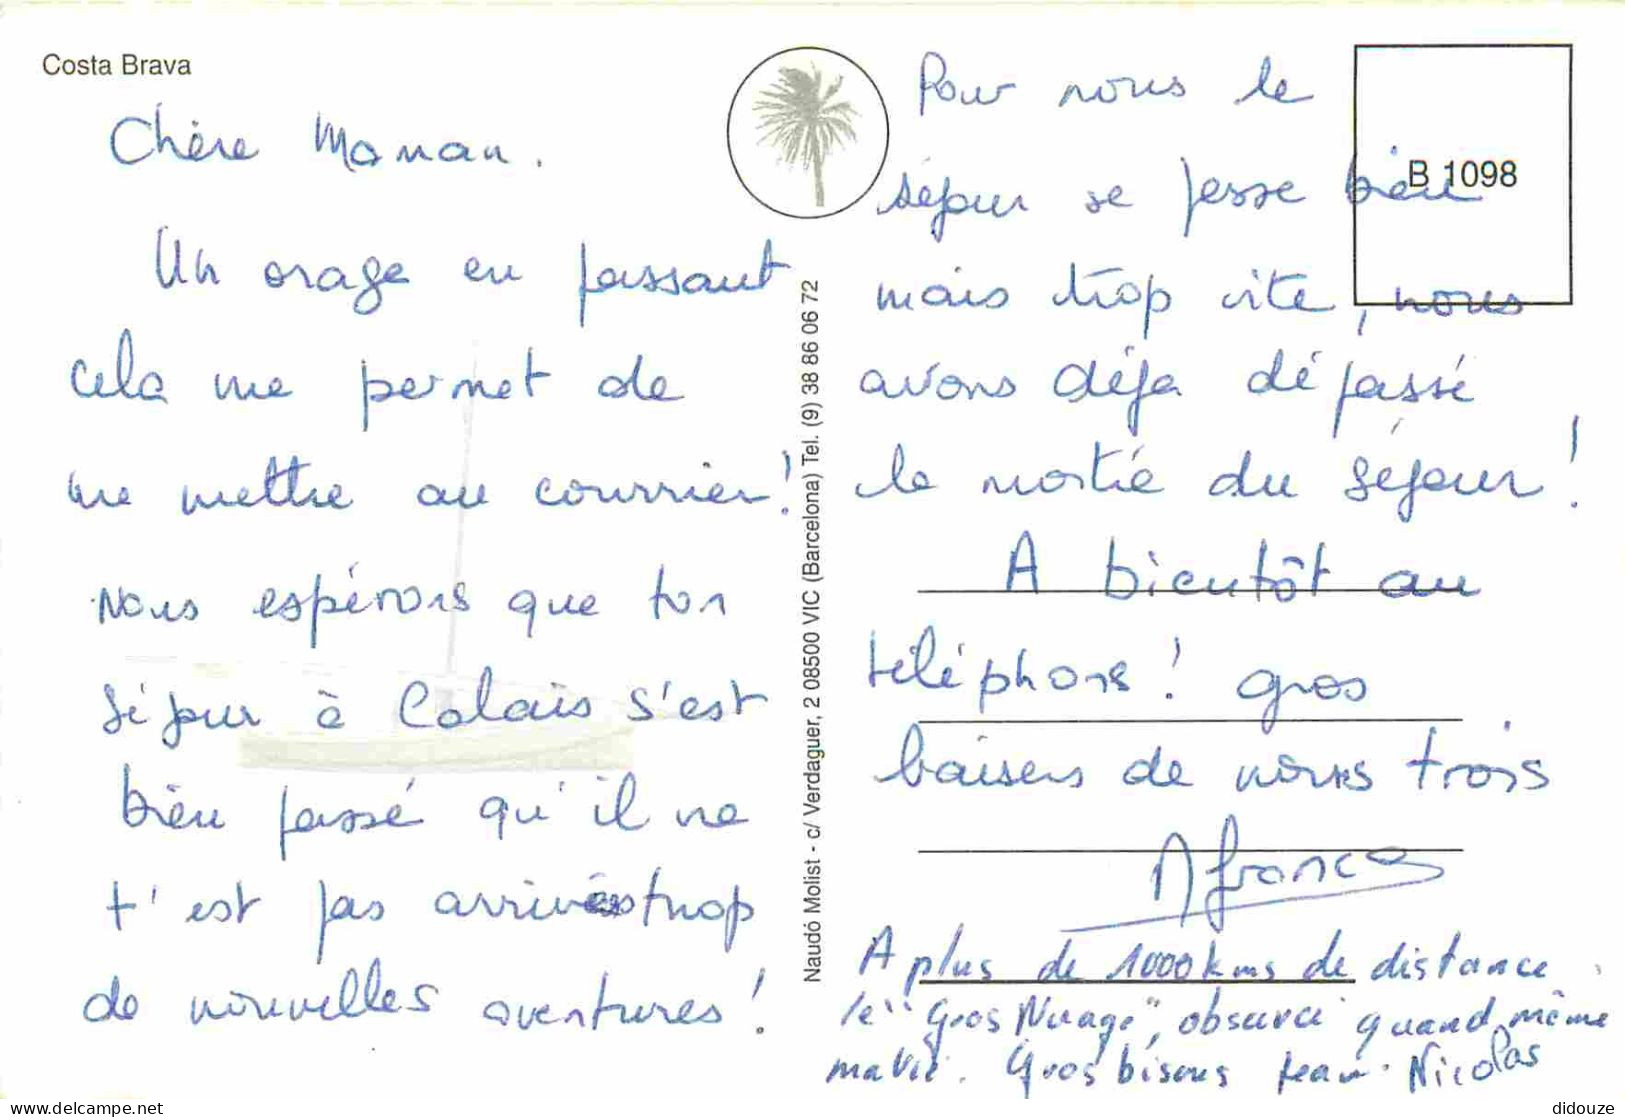 Costa Brava
Chère Maman.
Un orage en passant
cela me permet de
me mettre au courrier!
Nous espérons que ton
séjour à Calais s'est
bien passé qu'il ne
t'est pas arrivé trop
de nouvelles aventures!
Naudó Molist - c/ Verdaguer, 2 08500 VIC (Barcelona) Tel. (9) 38 86 06 72
B 1098
Pour nous le
séjour se passe bien
mais trop vite, nous
avons déjà dépassé
la moitié du séjour!
A bientôt au
téléphone! gros
baisers de nous trois
A plus de 1000 kms de distance,
le "Gros Nuage", obscurci quand même
ma vie. Gros bisous Nicolas
didouze
delcampe.net